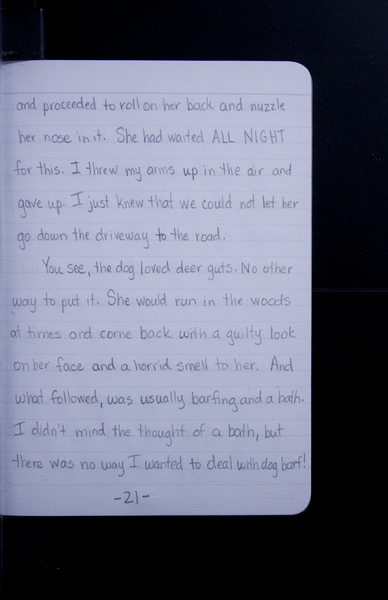 and proceeded to roll on her back and nuzzle
her nose in it. She had waited ALL NIGHT
for this. I threw my arms up in the air and
gave up. I just knew that we could not let her
go down the driveway to the road.
You see, the dog loved deer guts. No other
way to put it. She would run in the woods
at times and come back with a guilty look
on her face and a horrid smell to her. And
what followed, was usually barfing and a bath.
I didn't mind the thought of a bath, but
there was no way I wanted to deal with dog barf!
-21-